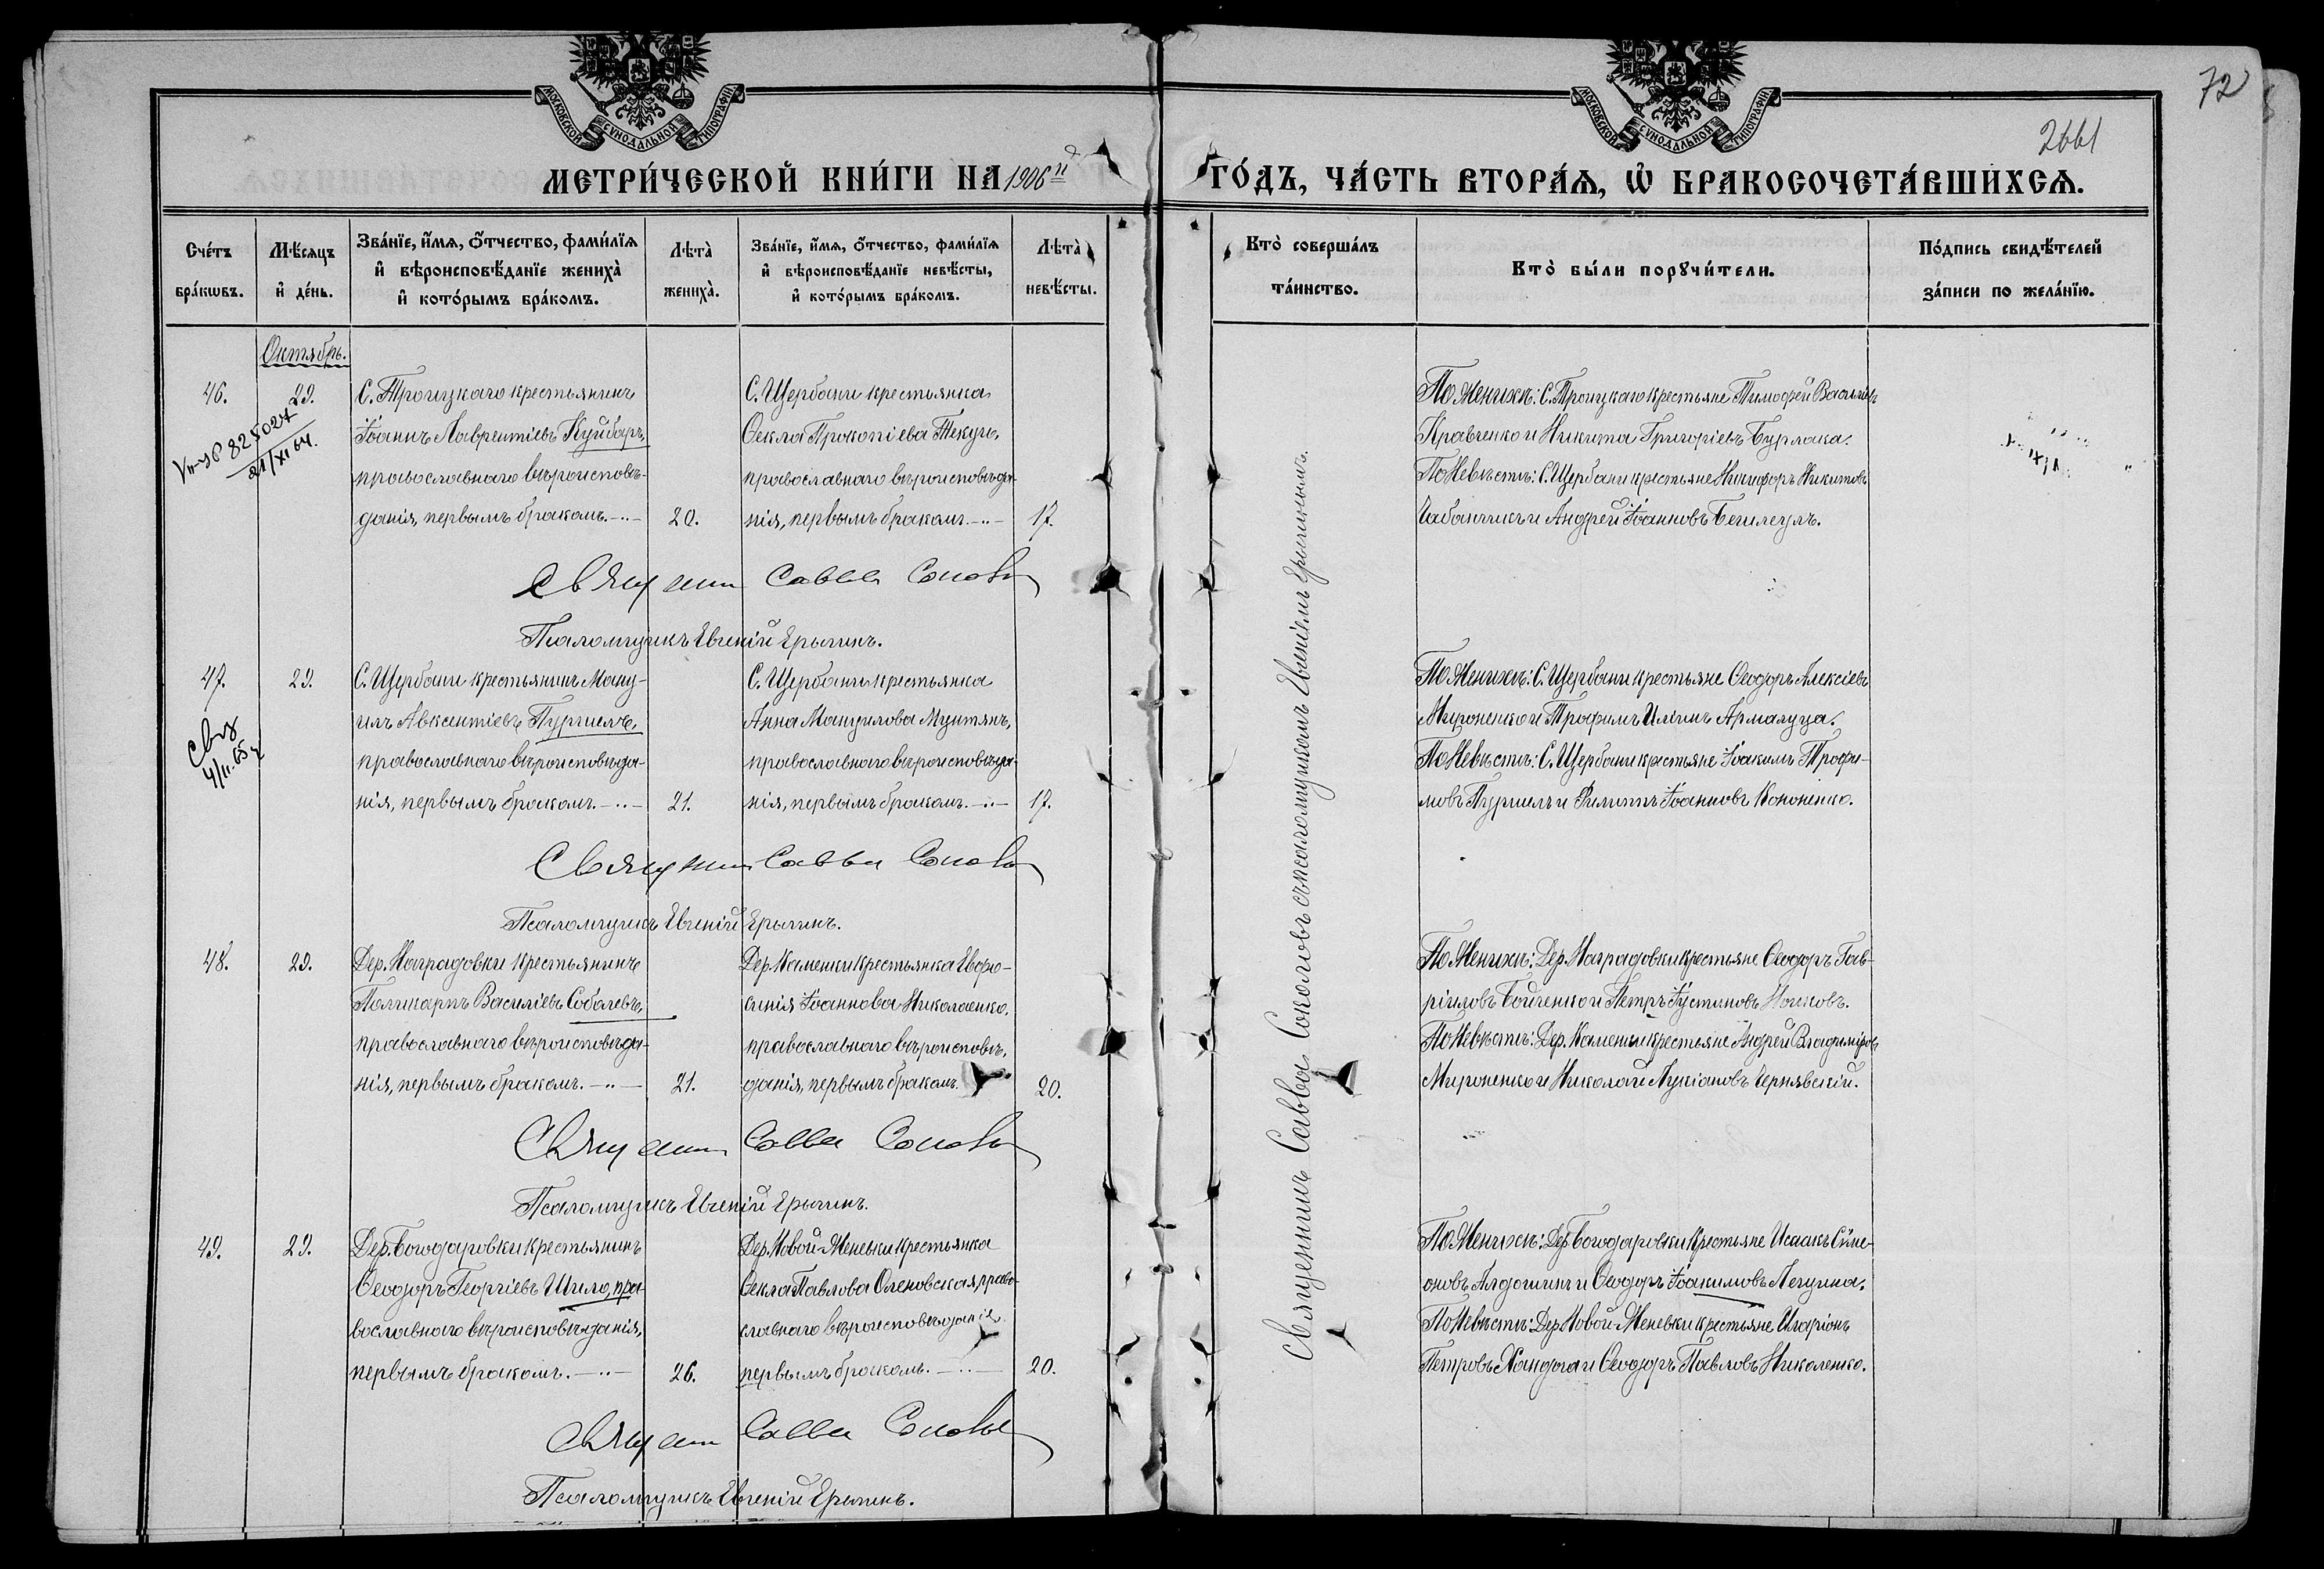 72
2661
МОСКОВСКОЙ СѴНОДАЛЬНОЙ ТИПОГРАФІИ
МОСКОВСКОЙ СѴНОДАЛЬНОЙ ТИПОГРАФІИ
МЕТРИ́ЧЕСКОЙ КНИ́ГИ НА 1906й
ГО́ДЪ, ЧА́СТЬ ВТОРА́Ѧ, Ѡ҆ БРАКОСОЧЕТА́ВШИХСѦ.
Сче́тъ бра́кѡвъ.
Мѣ́сѧцъ и҆ де́нь.
Зва́нїе, и҆́мѧ, ѻ҆́тчество, фами́лїѧ и҆ вѣроисповѣ́данїе жениха̀ и҆ кото́рымъ бра́комъ.
Лѣта̀ жениха̀.
Зва́нїе, и҆́мѧ, ѻ҆́тчество, фами́лїѧ и҆ вѣроисповѣ́данїе невѣ́сты, и҆ кото́рымъ бра́комъ.
Лѣта̀ невѣ́сты.
Кто̀ соверша́лъ та́инство.
Кто̀ бы́ли порꙋчи́тели.
По́дпись свидѣ́телей за́писи по жела́нїю.
Октябрь.
46.
29.
825027
21/XI 64.
С. Троицкаго крестьянинъ
Іоаннъ Лаврентіевъ Куйбаръ,
православнаго вѣроисповѣ-
данія, первымъ бракомъ.
20.
С. Щербани крестьянка
Ѳекла Прокопіева Текучъ,
православнаго вѣроисповѣда-
нія, первымъ бракомъ.
17.
По Женихѣ: С. Троицкаго крестьяне Тимофей Васильевъ
Кравченко и Никита Григоріевъ Бурлака.
По Невѣстѣ: С. Щербани крестьяне Никифоръ Никитовъ
Чабанчикъ и Андрей Іоанновъ Бешлеулъ.
Священникъ Савва Соколовъ
Псаломщикъ Евгеній Ерыгинъ.
47.
29.
4/II.65
С. Щербани крестьянинъ Ману-
илъ Авксентіевъ Пуршелъ,
православнаго вѣроисповѣда-
нія, первымъ бракомъ.
21.
С. Щербани крестьянка
Анна Мануилова Мунтянъ,
православнаго вѣроисповѣда-
нія, первымъ бракомъ.
17.
По Женихѣ: С. Щербани крестьяне Ѳеодоръ Алексіевъ
Мироненко и Трофимъ Иліинъ Армалуца.
По Невѣстѣ: С. Щербани крестьяне Іоакимъ Трофи-
мовъ Пуршелъ и Филиппъ Іоанновъ Кононенко.
Священникъ Савва Соколовъ
Псаломщикъ Евгеній Ерыгинъ.
48.
29.
Дер. Наградовки крестьянинъ
Поликарпъ Василіевъ Соболевъ,
православнаго вѣроисповѣда-
нія, первымъ бракомъ.
21.
Дер. Каменки крестьянка Евфро-
синія Іоаннова Николаенко,
православнаго вѣроисповѣ-
данія, первымъ бракомъ.
20.
По Женихѣ: Дер. Наградовки крестьяне Ѳеодоръ Гав-
ріиловъ Бойченко и Петръ Іустиновъ Носковъ.
По Невѣстѣ: Дер. Каменки крестьяне Андрей Владиміровъ
Мироненко и Николай Лукіановъ Чернявскій.
Священникъ Савва Соколовъ
Псаломщикъ Евгеній Ерыгинъ.
49.
29.
Дер. Богодаровки крестьянинъ
Ѳеодоръ Георгіевъ Шило, пра-
вославнаго вѣроисповѣданія,
первымъ бракомъ.
26.
Дер. Новой-Женевки крестьянка
Ѳекла Павлова Оленовская, право-
славнаго вѣроисповѣданія,
первымъ бракомъ.
20.
По Женихѣ: Дер. Богодаровки крестьяне Исаакъ Сѵме-
оновъ Алдошинъ и Ѳеодоръ Іоакимовъ Легушка.
По Невѣстѣ: Дер. Новой-Женевки крестьяне Иларіонъ
Петровъ Хандога и Ѳеодоръ Павловъ Николенко.
Священникъ Савва Соколовъ
Псаломщикъ Евгеній Ерыгинъ.
Священникъ Савва Соколовъ съ псаломщикомъ Евгеніемъ Ерыгинымъ.